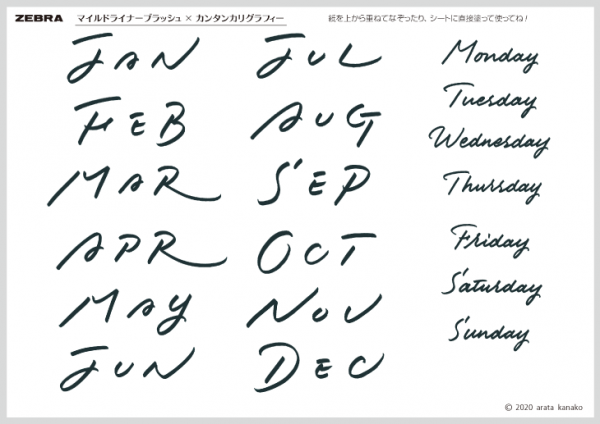 ZEBRA マイルドライナーブラッシュ × カンタンカリグラフィー 紙を上から重ねてなぞったり、シートに直接塗って使ってね!
JAN
FEB
MAR
APR
MAY
JUN
JUL
AUG
SEP
OCT
NOV
DEC
Monday
Tuesday
Wednesday
Thursday
Friday
Saturday
Sunday
© 2020 arata kanako